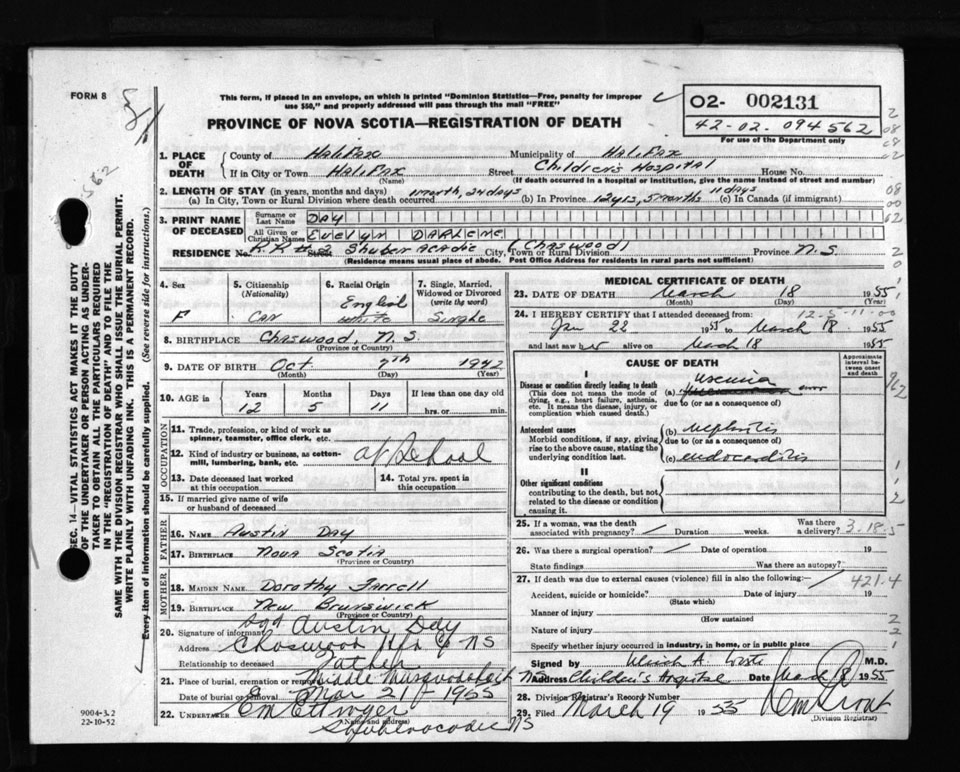 FORM 8
This form, if placed in an envelope, on which is printed "Dominion Statistics—Free, penalty for improper
use $50," and properly addressed will pass through the mail "FREE"
PROVINCE OF NOVA SCOTIA—REGISTRATION OF DEATH
O2- 002131
42-02. 094562
For use of the Department only
562
SEC. 14—VITAL STATISTICS ACT MAKES IT THE DUTY
OF THE UNDERTAKER OR PERSON ACTING AS UNDER-
TAKER TO OBTAIN ALL THE PARTICULARS REQUIRED
IN THE "REGISTRATION OF DEATH" AND TO FILE THE
SAME WITH THE DIVISION REGISTRAR WHO SHALL ISSUE THE BURIAL PERMIT.
WRITE PLAINLY WITH UNFADING INK. THIS IS A PERMANENT RECORD.
Every item of information should be carefully supplied. (See reverse side for instructions.)
1. PLACE OF DEATH
County of Halifax Municipality of Halifax
If in City or Town Halifax Street Children's Hospital House No.
(Name) (If death occurred in a hospital or institution, give the name instead of street and number)
2. LENGTH OF STAY (in years, months and days)
(a) In City, Town or Rural Division where death occurred 1 month, 24 days (b) In Province 12 yrs, 5 months 11 days (c) In Canada (if immigrant)
3. PRINT NAME OF DECEASED
Surname or Last Name DAY
All Given or Christian Names Evelyn DARLENE
RESIDENCE No. R.R.# 2 Street Shubenacadie City, Town or Rural Division (Chaswood) Province N.S.
(Residence means usual place of abode. Post Office Address for residents in rural parts not sufficient)
4. Sex F
5. Citizenship (Nationality) CAN
6. Racial Origin English White
7. Single, Married, Widowed or Divorced (write the word) Single
8. BIRTHPLACE Chaswood, N.S.
(Province or Country)
9. DATE OF BIRTH Oct. 7th 1942
(Month) (Day) (Year)
10. AGE IN Years 12 Months 5 Days 11 If less than one day old hrs. or min.
OCCUPATION
11. Trade, profession, or kind of work as spinner, teamster, office clerk, etc.
12. Kind of industry or business, as cotton-mill, lumbering, bank, etc. at School
13. Date deceased last worked at this occupation
14. Total yrs. spent in this occupation
15. If married give name of wife or husband of deceased
FATHER
16. NAME Austin Day
17. BIRTHPLACE Nova Scotia
(Province or Country)
MOTHER
18. MAIDEN NAME Dorothy Farrell
19. BIRTHPLACE New Brunswick
(Province or Country)
20. Signature of informant Sgd Austin Day
Address Chaswood Hfx Co NS
Relationship to deceased Father
21. Place of burial, cremation or removal Middle Musquodoboit
Date of burial or removal Mar 21 - 1955
22. UNDERTAKER Em Ettinger
(Name and address)
Shubenacadie NS
9004-3.2
22-10-52
MEDICAL CERTIFICATE OF DEATH
23. DATE OF DEATH March 18 1955
(Month) (Day)
12-5-11-00
24. I HEREBY CERTIFY that I attended deceased from:
Jan 22 1955 to March 18 1955
and last saw her alive on March 18 1955
CAUSE OF DEATH
Approximate interval between onset and death
I
Disease or condition directly leading to death
(This does not mean the mode of dying, e.g., heart failure, asthenia, etc. It means the disease, injury, or complication which caused death.)
(a) uremia error
due to (or as a consequence of)
Antecedent causes
Morbid conditions, if any, giving rise to the above cause, stating the underlying condition last.
(b) nephritis
due to (or as a consequence of)
(c) endocarditis
II
Other significant conditions
contributing to the death, but not related to the disease or condition causing it.
25. If a woman, was the death associated with pregnancy? Duration weeks. Was there a delivery? 3-18-5
26. Was there a surgical operation? Date of operation 19
State findings Was there an autopsy?
27. If death was due to external causes (violence) fill in also the following:—
421.4
Accident, suicide or homicide? Date of injury 19
(State which)
Manner of injury
(How sustained
Nature of injury
Specify whether injury occurred in industry, in home, or in public place
Signed by M.D.
Address Children's Hospital Date March 18 1955
28. Division Registrar's Record Number
29. Filed March 19 1955
(Division Registrar)